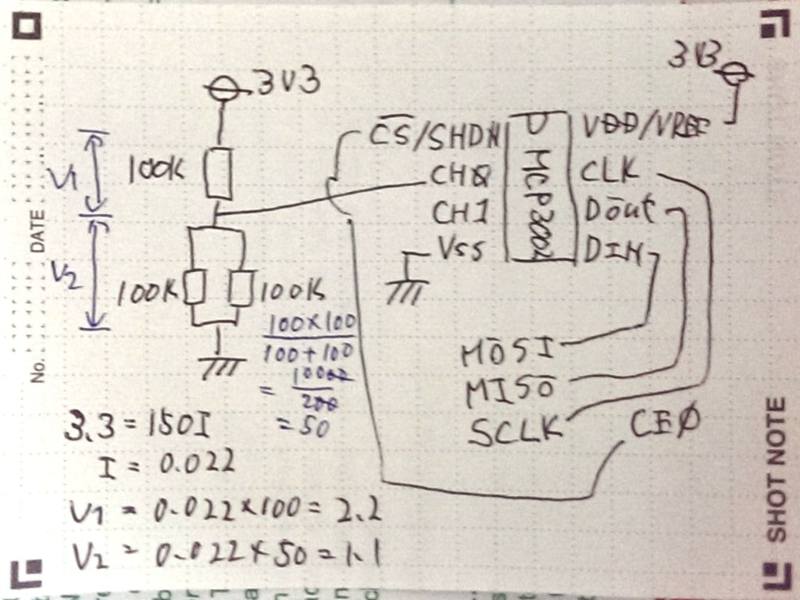 3V3
3V3
C̅S̅/SHDN
VDD/VREF
V1
100K
CH0
MCP3002
CLK
CH1
Dout
V2
Vss
DIN
100K
100K
100×100
100+100
= 10000
200
= 50
MOSI
MISO
SCLK
CE0
3.3 = 150I
I = 0.022
V1 = 0.022×100 = 2.2
V2 = 0.022×50 = 1.1
No.
DATE
SHOT NOTE